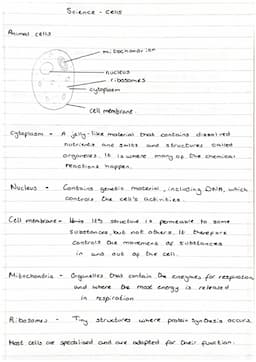 Science - cells
Animal cells
mitochondrion
nucleus
ribosomes
cytoplasm
cell membrane
Cytoplasm - A jelly-like material that contains dissolved
nutrients and salts and structures called
organelles. It is where many of the chemical
reactions happen.
Nucleus - Contains genetic material, including DNA, which
controls the cell's activities.
Cell membrane - its structure is permeable to some
substances, but not others. It therefore
controls the movement of substances
in and out of the cell.
Mitochondria - Organelles that contain the enzymes for respiration,
and where the most energy is released
in respiration
Ribosomes - Tiny structures where protein synthesis occurs.
Most cells are specialised and are adapted for their function.